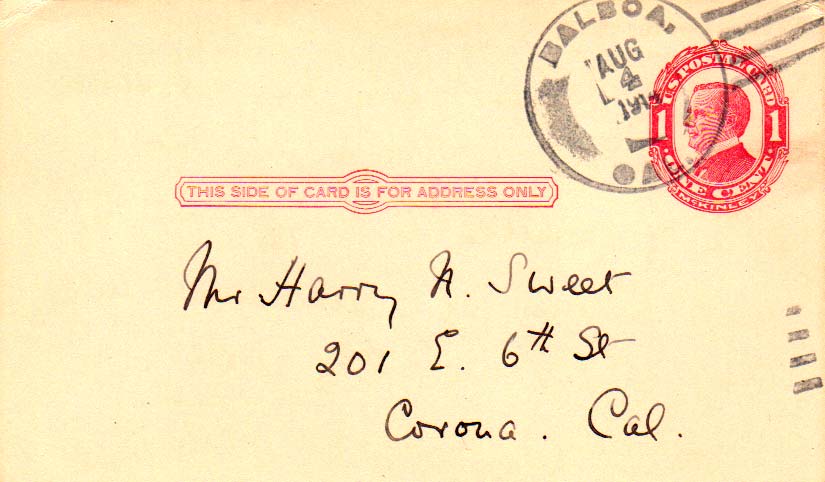 BALBOA,
AUG
4
U.S. POSTAL CARD
1 1
ONE CENT.
McKINLEY
THIS SIDE OF CARD IS FOR ADDRESS ONLY
Mr Harry N. Sweet
201 E. 6th St
Corona. Cal.